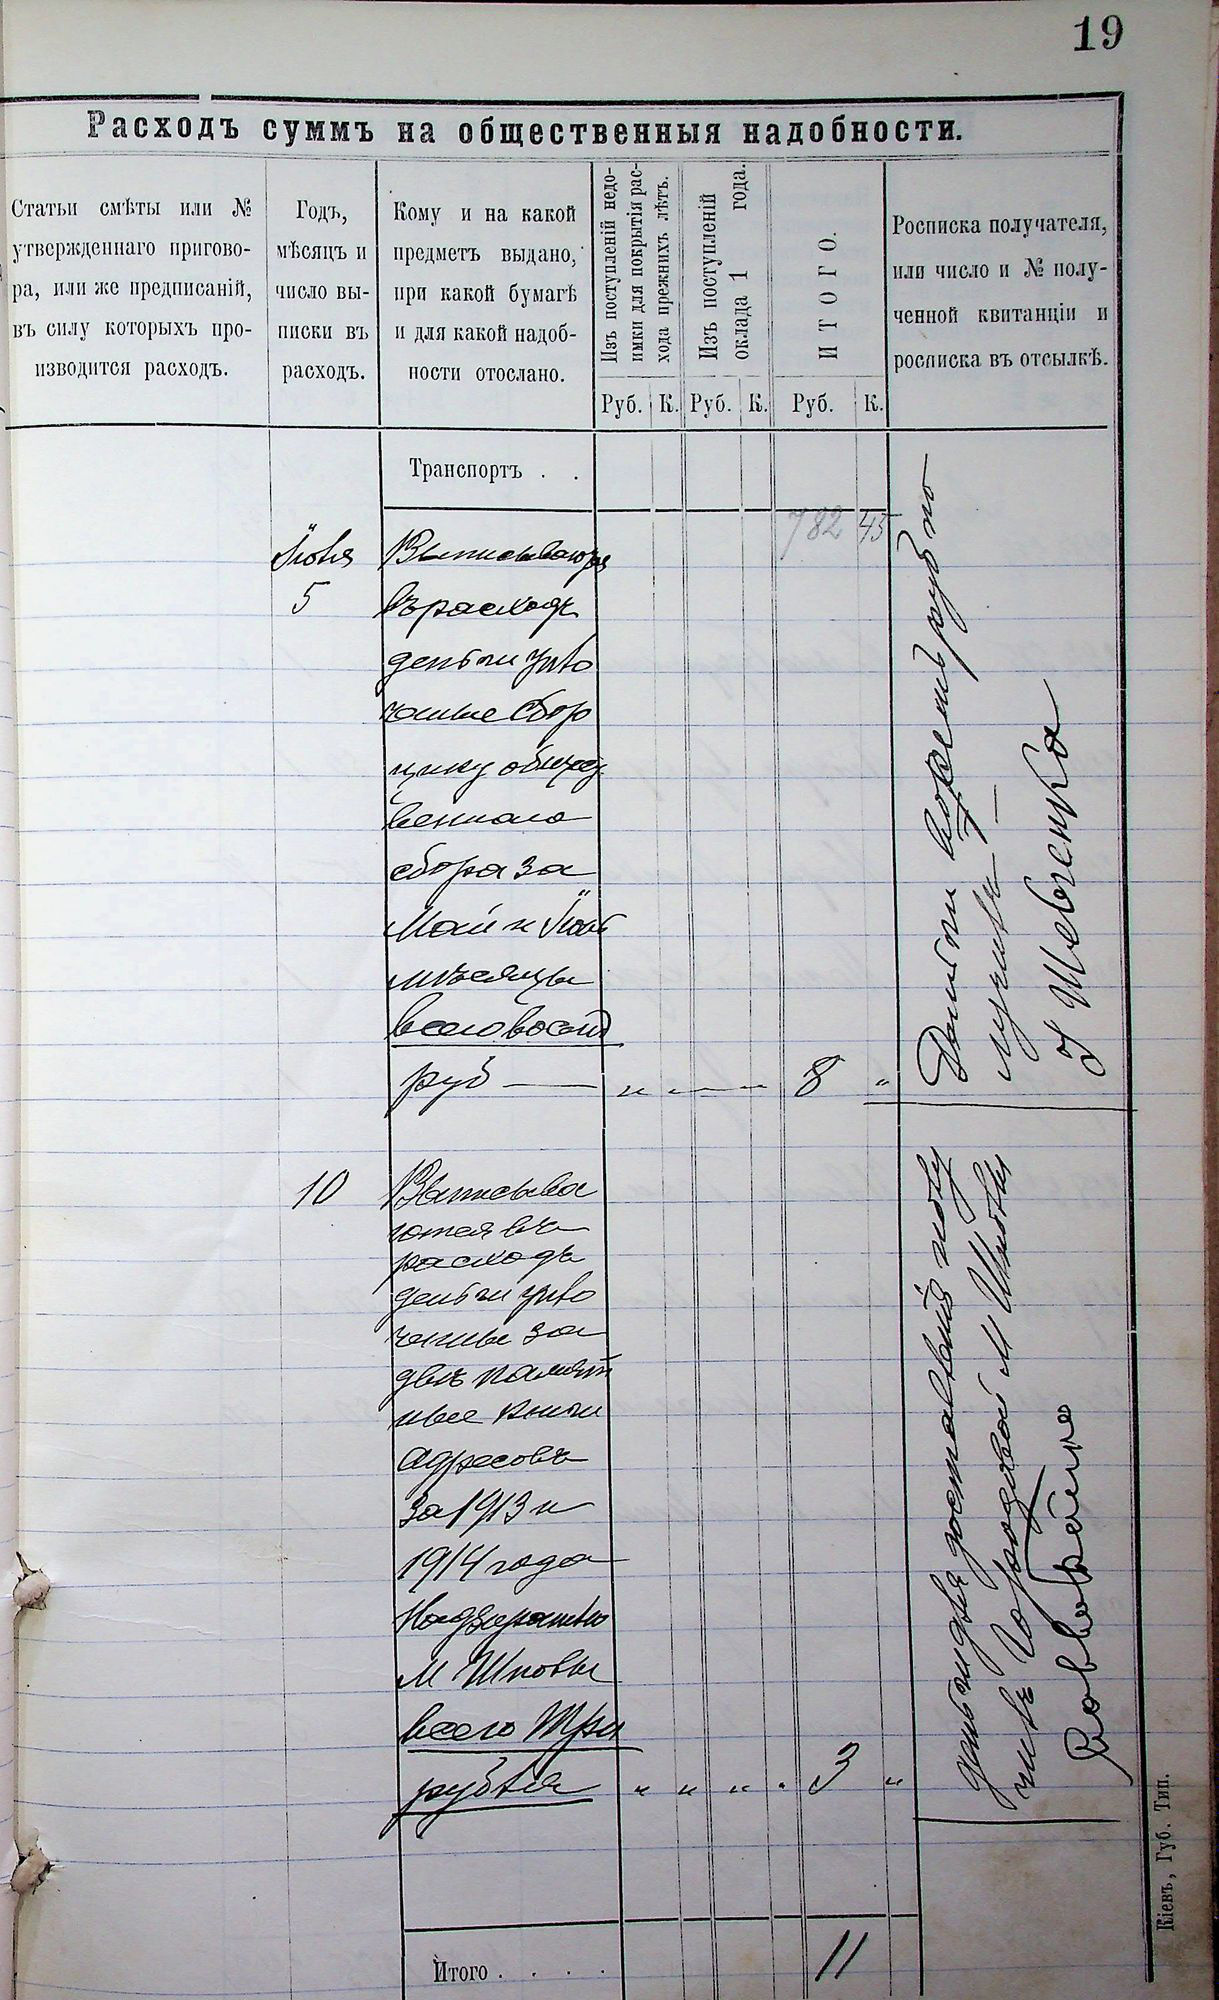 19
Расходъ суммъ на общественныя надобности.
Статьи смѣты или №
утвержденнаго пригово-
ра, или же предписаній,
въ силу которыхъ про-
изводится расходъ.
Годъ,
мѣсяцъ и
число вы-
писки въ
расходъ.
Кому и на какой
предметъ выдано,
при какой бумагѣ
и для какой надоб-
ности отослано.
Изъ поступленій недо-
имки для покрытія рас-
хода прежнихъ лѣтъ.
Изъ поступленій
оклада 1 года.
ИТОГО.
Росписка получателя,
или число и № полу-
ченной квитанціи и
росписка въ отсылкѣ.
Руб. К. Руб. К. Руб. К.
Транспортъ . .
782 45
Іюня Выписываются
5 въ расходъ
деньги упло
ченные сбор
щику общес
венного
сбора за
Май и Іюнь
мѣсяцы
всего восемь
руб — „ — — 8 „
Деньги восемь руб по
лучилъ
Шевченко
10 Выписыва
ются въ
расходъ
деньги упло
чены за
двѣ памят
ные книги
адресовъ
за 1913 и
1914 года
М Шповы
всего Три
рубля „ „ „ „ 3 „
деньги для доставкѣ полу
чилъ Городовой М Шповы
Итого . . . . 11
Кіевъ, Губ. Тип.